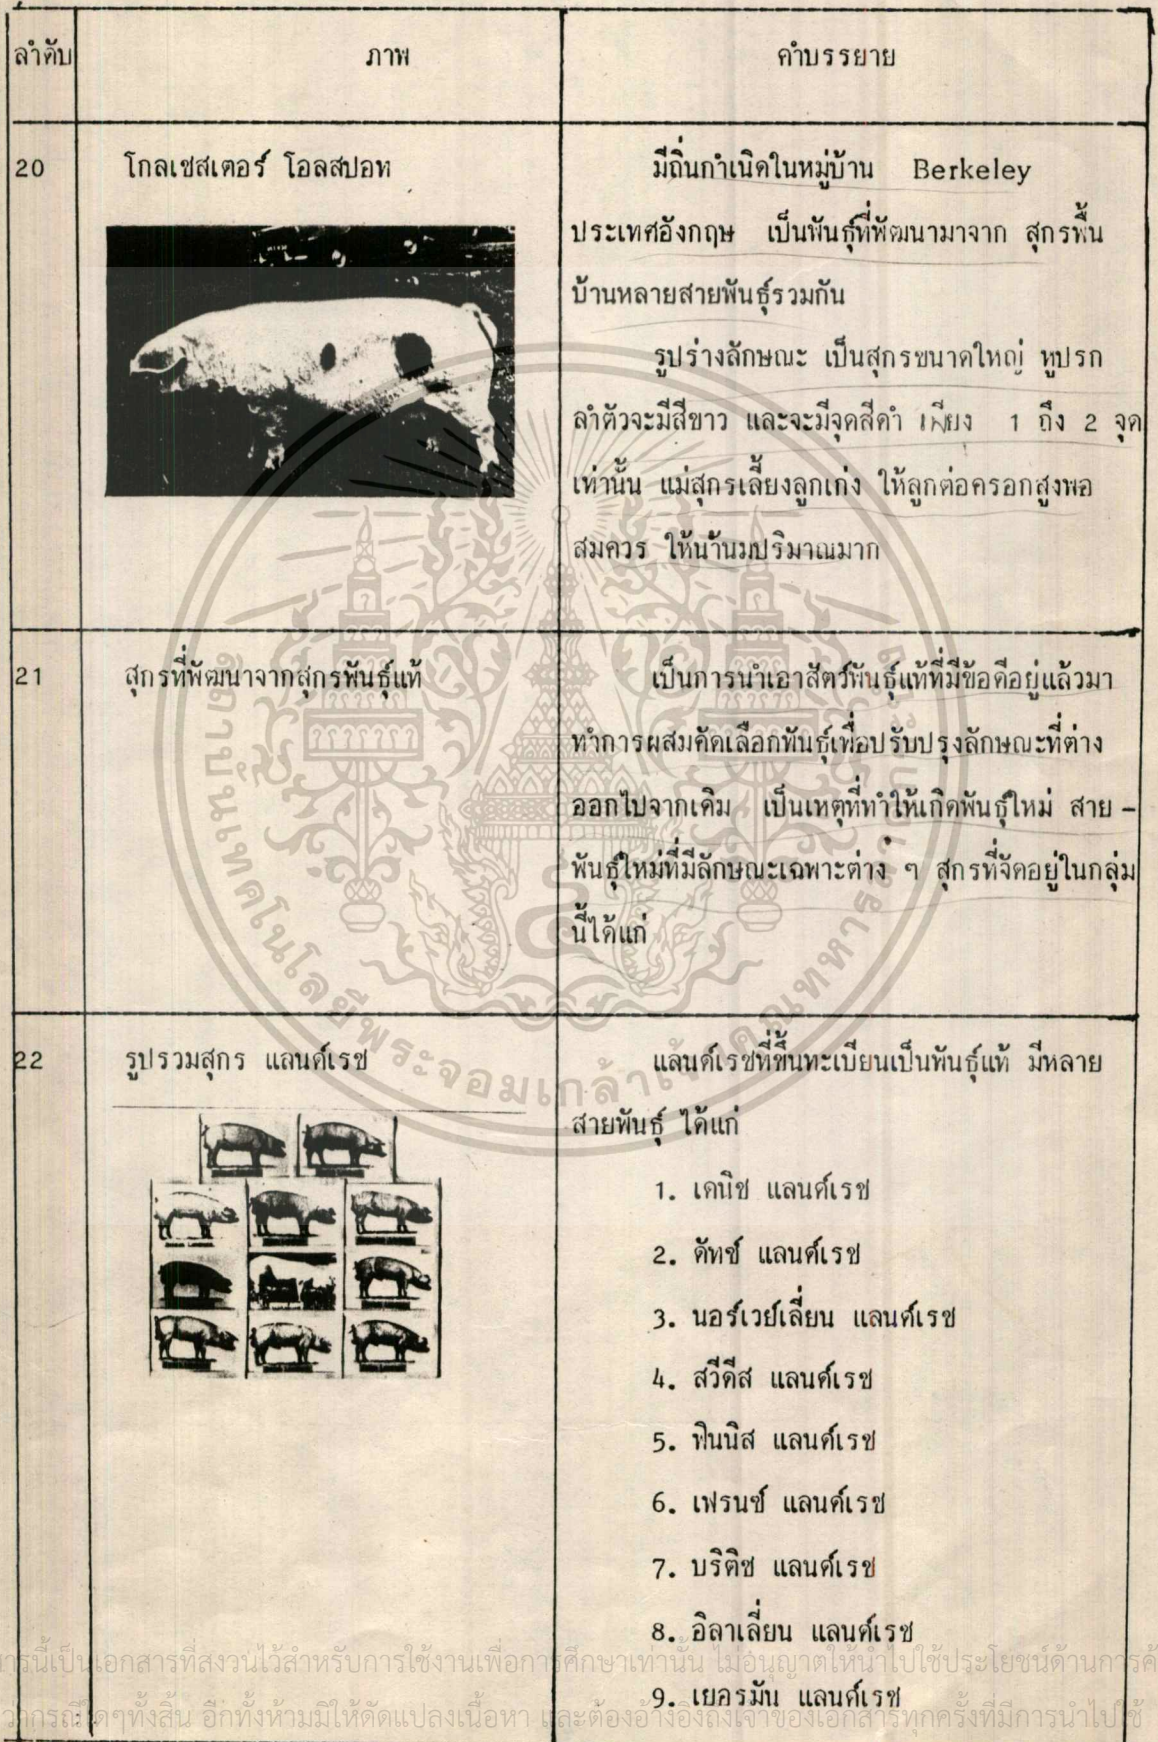 ลำดับ
ภาพ
คำบรรยาย
20
โกลเชสเตอร์ โอลสปอท
มีถิ่นกำเนิดในหมู่บ้าน Berkeley
ประเทศอังกฤษ เป็นพันธุ์ที่พัฒนามาจาก สุกรพื้น
บ้านหลายสายพันธุ์รวมกัน
รูปร่างลักษณะ เป็นสุกรขนาดใหญ่ หูปรก
ลำตัวจะมีสีขาว และจะมีจุดสีดำ เพียง 1 ถึง 2 จุด
เท่านั้น แม่สุกรเลี้ยงลูกเก่ง ให้ลูกต่อครอกสูงพอ
สมควร ให้น้ำนมปริมาณมาก
21
สุกรที่พัฒนาจากสุกรพันธุ์แท้
เป็นการนำเอาสัตว์พันธุ์แท้ที่มีข้อดีอยู่แล้วมา
ทำการผสมคัดเลือกพันธุ์เพื่อปรับปรุงลักษณะที่ต่าง
ออกไปจากเดิม เป็นเหตุที่ทำให้เกิดพันธุ์ใหม่ สาย -
พันธุ์ใหม่ที่มีลักษณะเฉพาะต่าง ๆ สุกรที่จัดอยู่ในกลุ่ม
นี้ได้แก่
22
รูปรวมสุกร แลนด์เรช
แลนด์เรชที่ขึ้นทะเบียนเป็นพันธุ์แท้ มีหลาย
สายพันธุ์ ได้แก่
1. เดนิช แลนด์เรช
2. ดัทช์ แลนด์เรช
3. นอร์เวย์เลี่ยน แลนด์เรช
4. สวีดีส แลนด์เรช
5. ฟินนิส แลนด์เรช
6. เฟรนช์ แลนด์เรช
7. บริติช แลนด์เรช
8. อิลาเลี่ยน แลนด์เรช
9. เยอรมัน แลนด์เรช
สถาบันเทคโนโลยีพระจอมเกล้าเจ้าคุณทหารลาดกระบัง
ารนี้เป็นเอกสารที่สงวนไว้สำหรับการใช้งานเพื่อการศึกษาเท่านั้น ไม่อนุญาตให้นำไปใช้ประโยชน์ด้านการค้
ว่ากรณีใดๆทั้งสิ้น อีกทั้งห้ามมิให้ดัดแปลงเนื้อหา และต้องอ้างอิงถึงเจ้าของเอกสารทุกครั้งที่มีการนำไปใช้